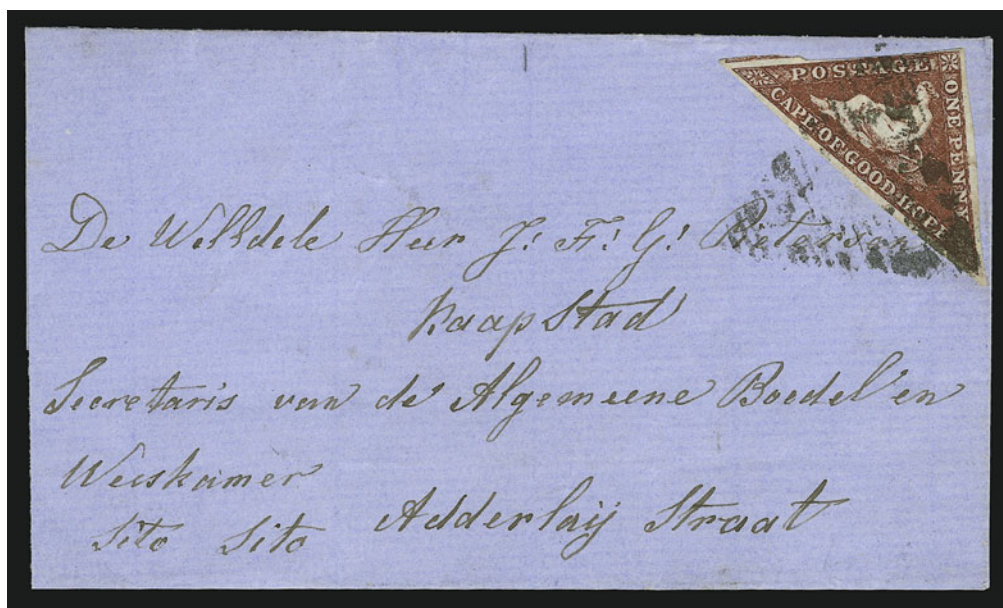 POSTAGE
ONE PENNY
CAPE OF GOOD HOPE
De WelEdele Heer J: F: G: Petersen
Kaapstad
Secretaris van de Algemeene Boedel en
Weeskamer
Sito Sito Adderlaij Straat